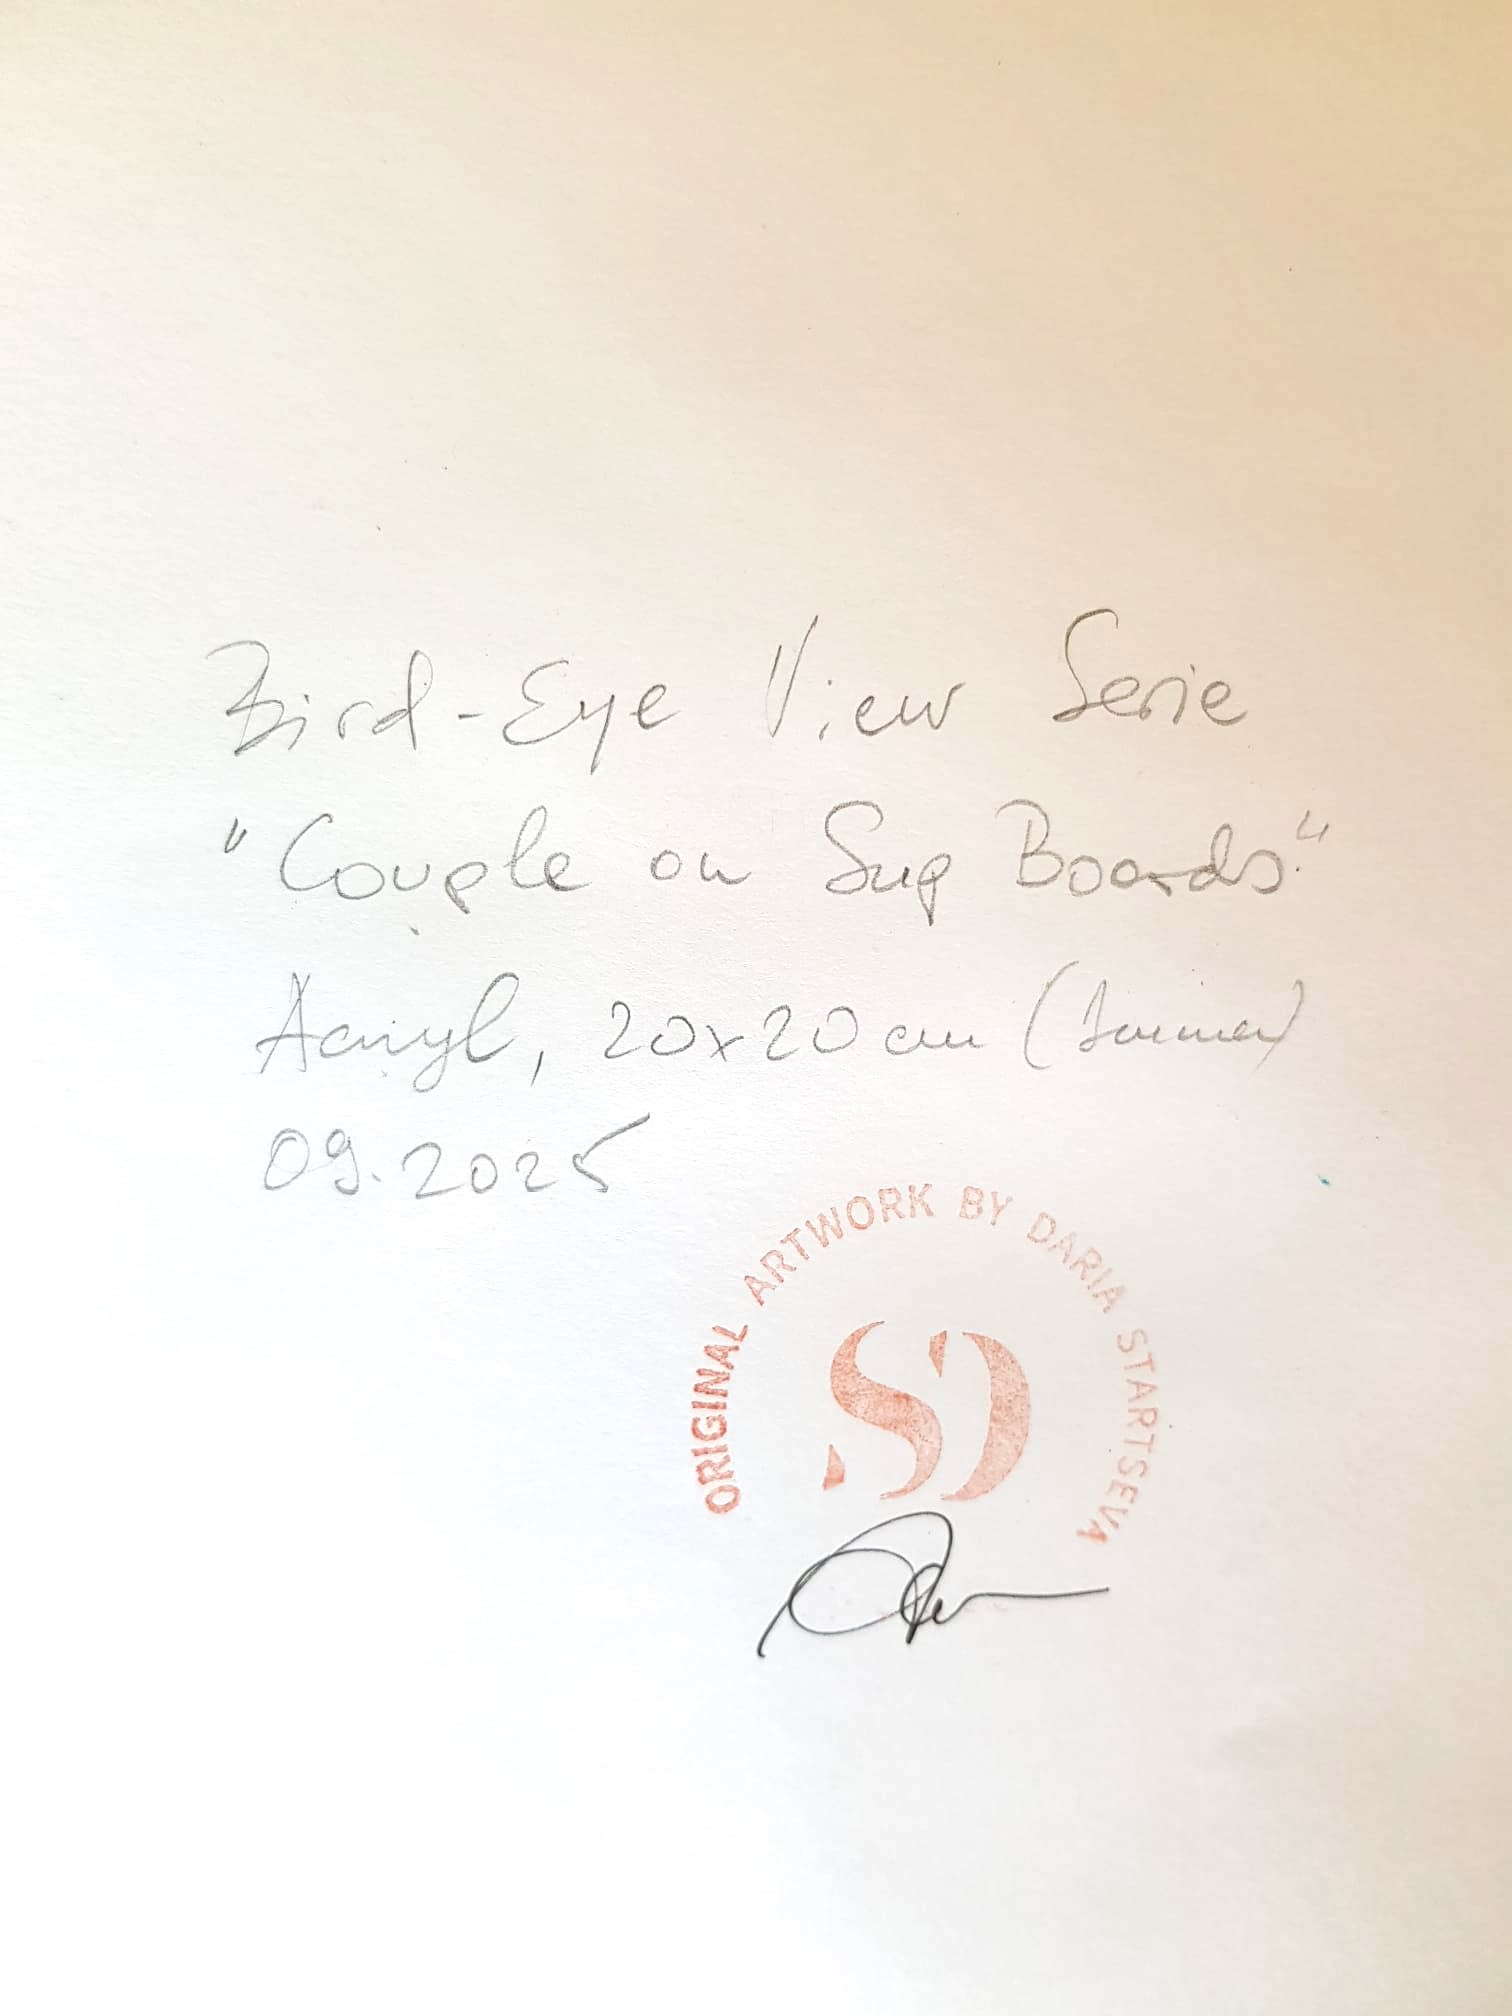 Bird-Eye View Serie
"Couple on Sup Boards."
Acryl, 20x20 cm
09.2025
ORIGINAL ARTWORK BY DARIA STARTSEVA
SD